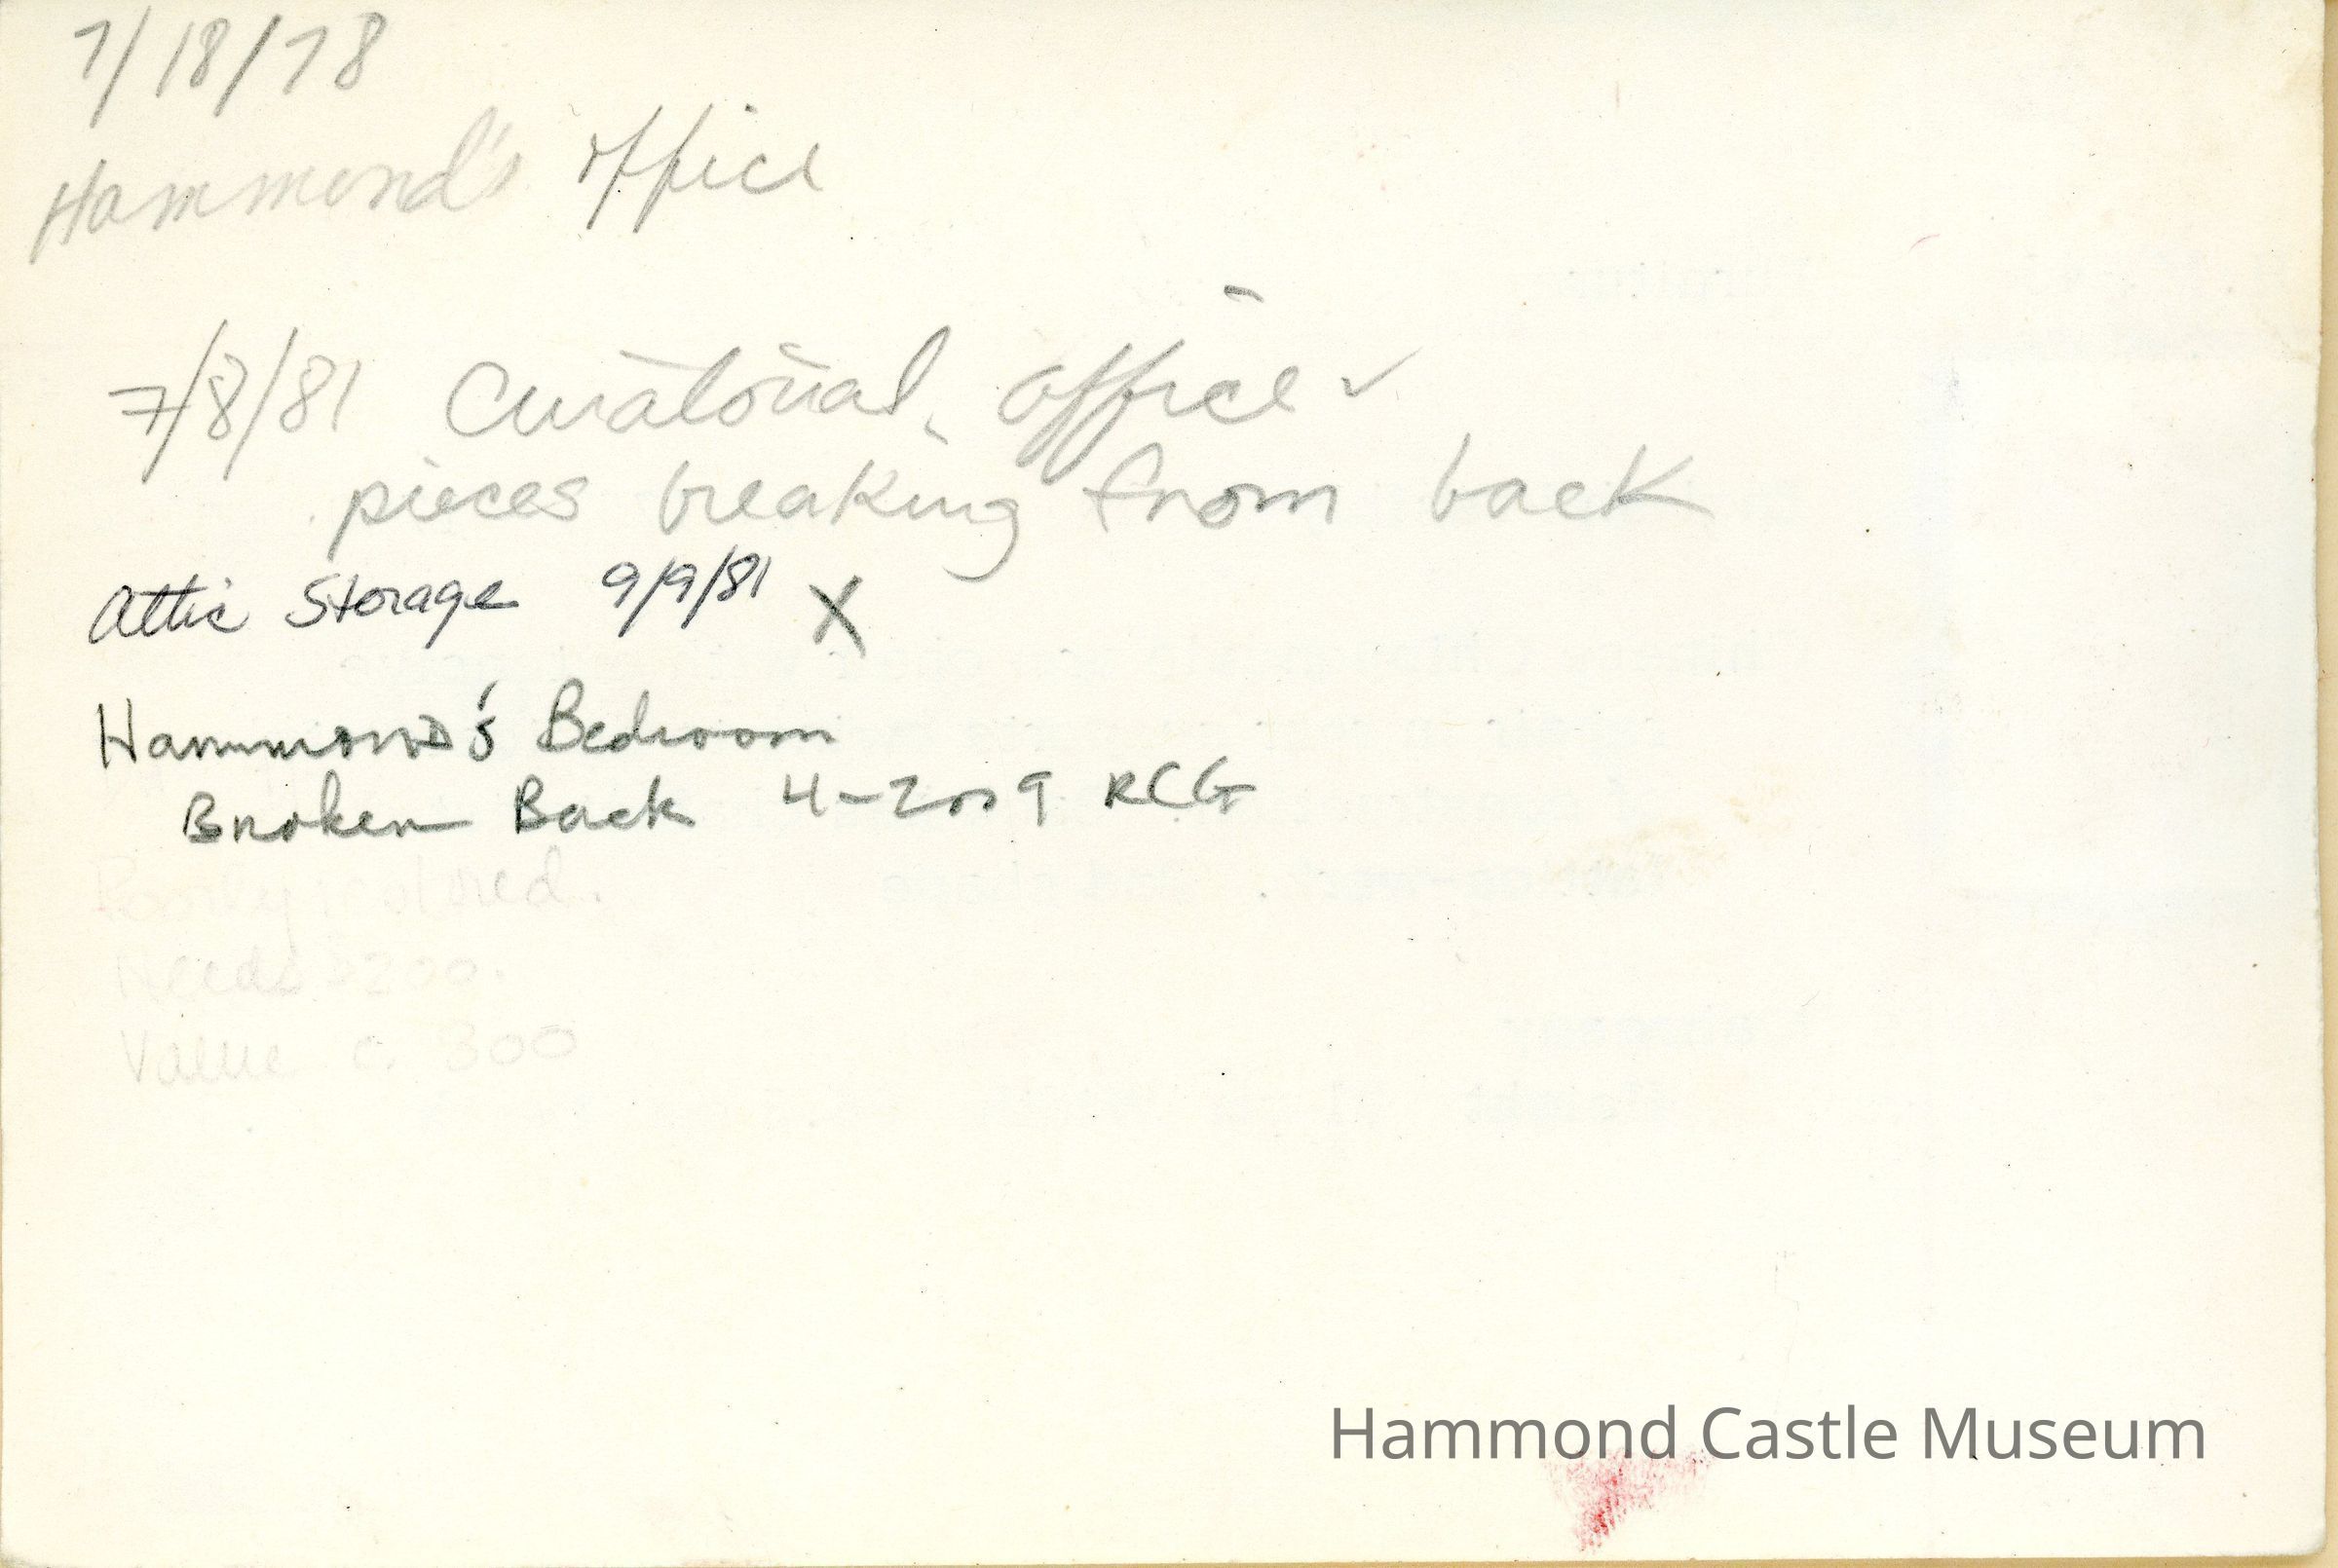 7/18/78
Hammond's office
7/8/81 Curatorial office ✓
pieces breaking from back
Attic Storage 9/9/81 X
Hammond's Bedroom
Broken Back 4-2009 RCG
Poorly restored.
Needs $200.
Value c. 300
Hammond Castle Museum